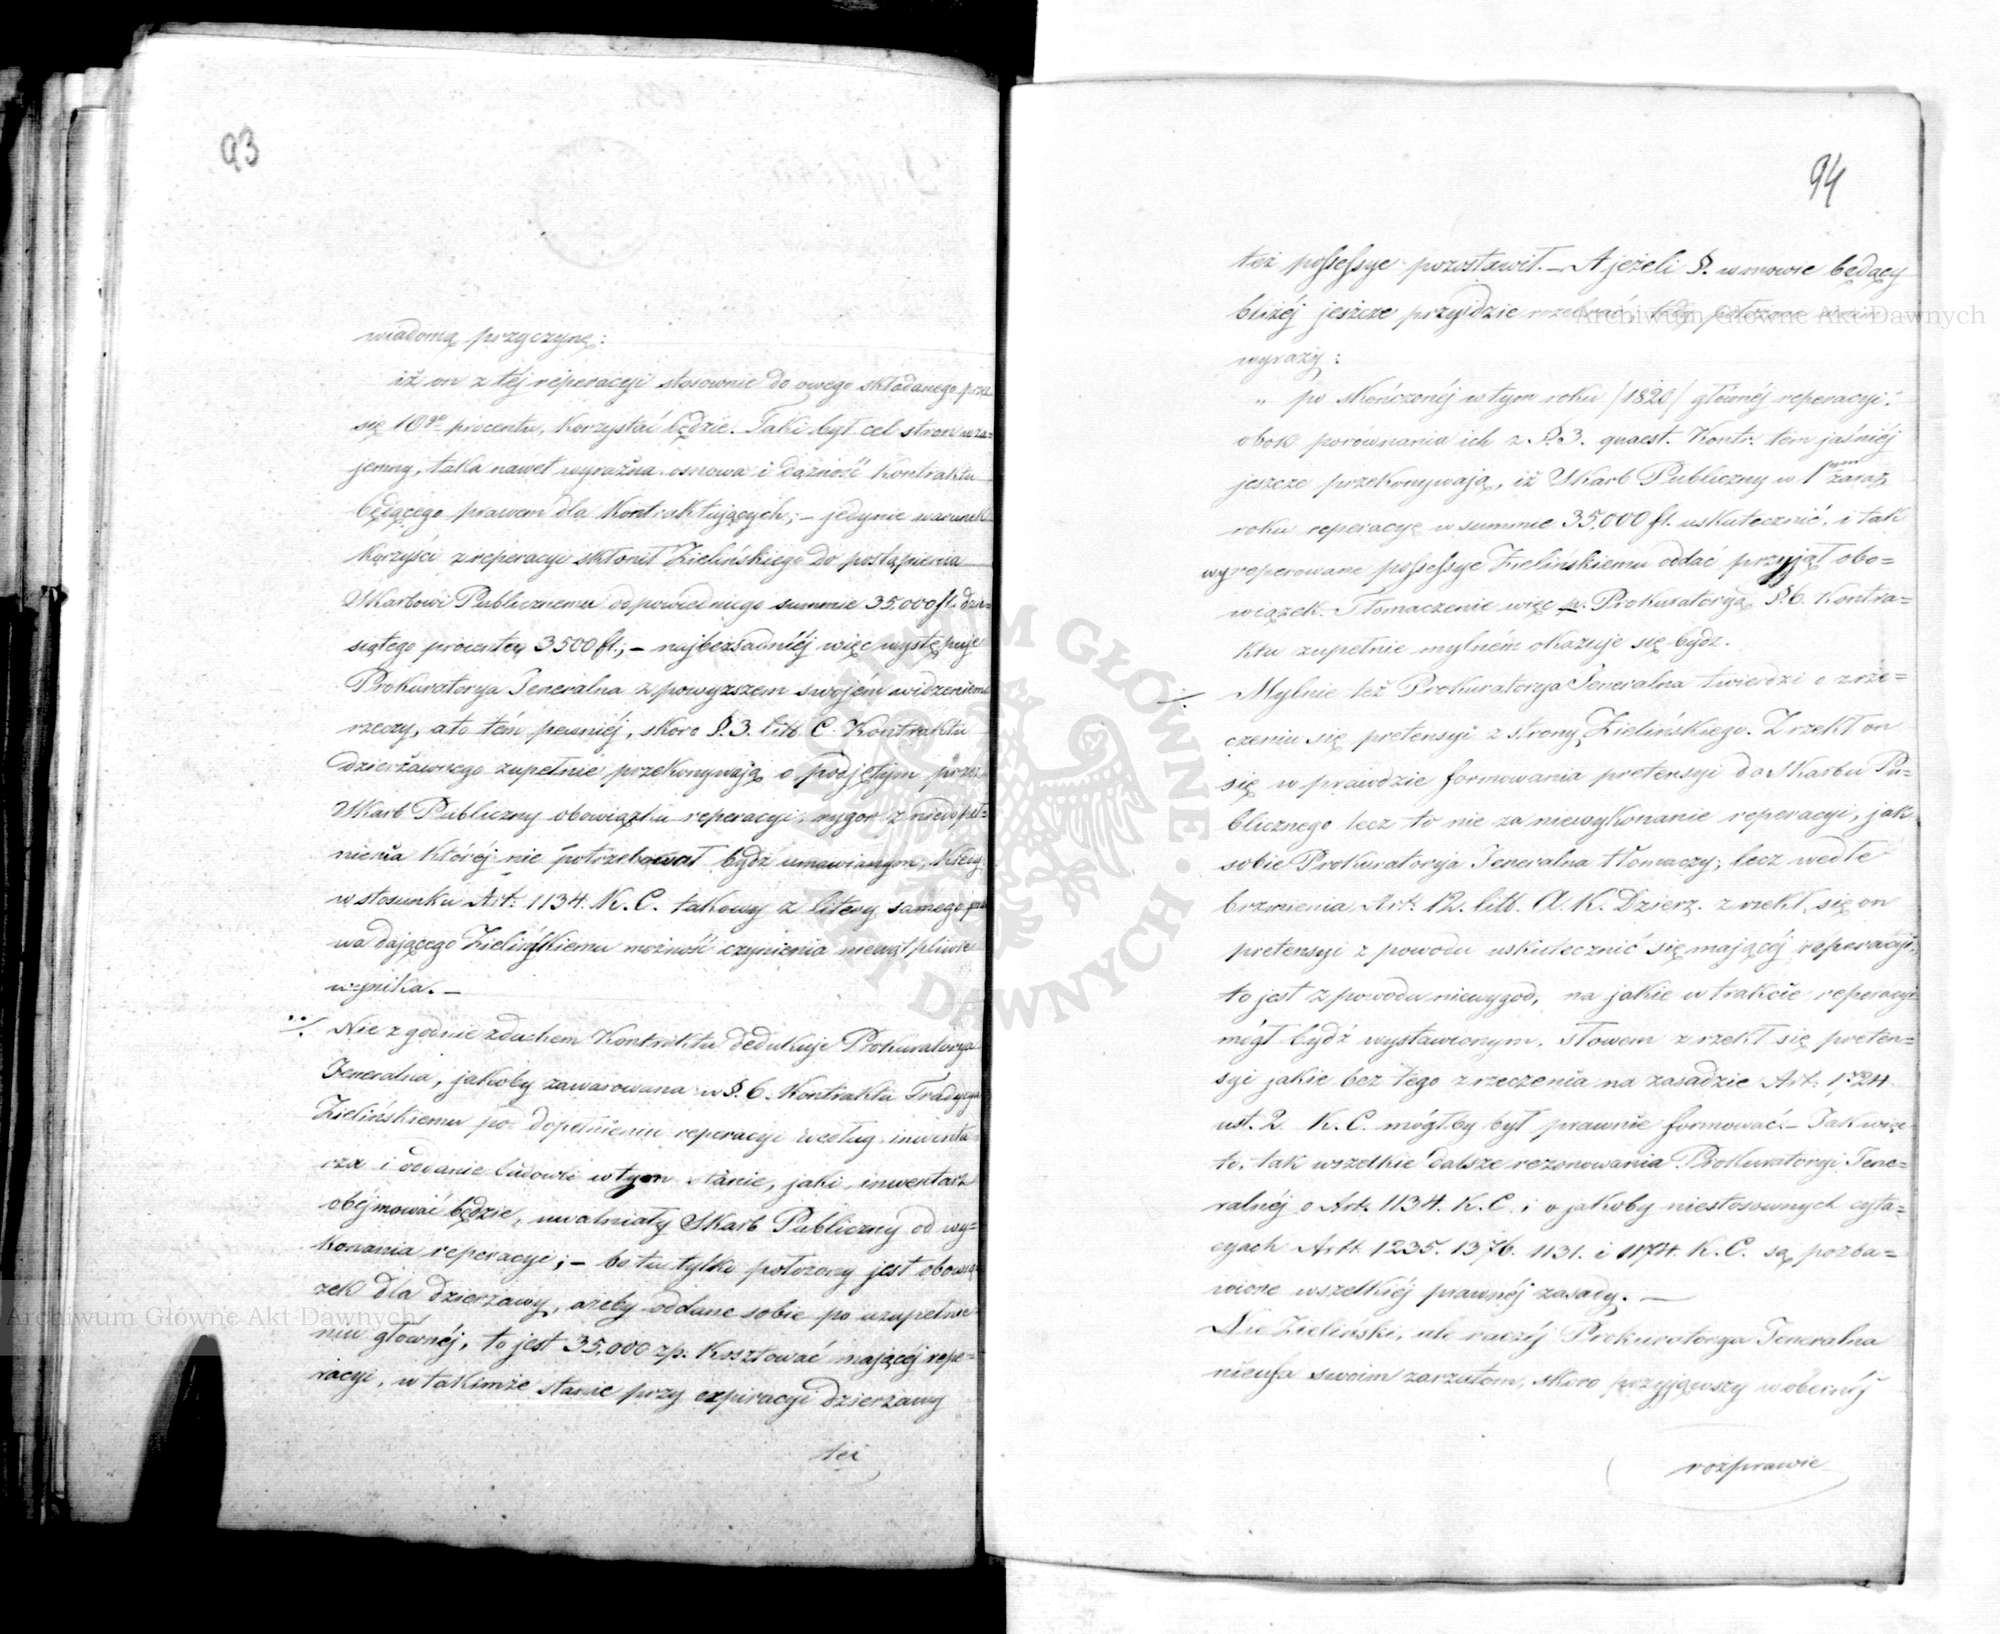 93
wiadomą przyczynę:
iż on z téj reperacyi stosownie do owego składanego przez
się 10go procentu, korzystać będzie. Taki był cel stron wza=
jemny, taka nawet wyraźna osnowa i dążność Kontraktu
będącego prawem dla Kontraktujących; – jedynie warunek
Korzyści z reperacyi skłonił Zielińskiego do postąpienia
Skarbowi Publicznemu odpowiedniego summie 35,000 fl. dzie=
siątego procentu 3500 fl.; – najbezsadniéj więc występuje
Prokuratorya Jeneralna z powyższem swojém widzeniem
rzeczy, a to tém pewniéj, skoro §. 3. litt. C. Kontraktu
Dzierżawnego zupełnie przekonywają o podjętym przez
Skarb Publiczny obowiązku reperacyi; rygor z niedopeł=
nienia któréj nie potrzebował bydź umawianym, kiedy
w stosunku Art: 1134. K. C. takowy z litery samego pra
wa dającego Zielińskiemu możność czynienia niewątpliwie
wynika. –
Niezgodnie z duchem Kontraktu dedukuje Prokuratorya
Jeneralna, jakoby zawarowana w §. 6. Kontraktu Tradycya
Zielińskiemu po dopełnieniu reperacyi według inwenta=
rza i oddanie budowli w tym stanie, jaki inwentarz
obéjmować będzie, uwalniały Skarb Publiczny od wy=
konania reperacyi; – bo tu tylko położony jest obowią=
zek dla dzierżawy, ażeby oddane sobie po uzupełnie=
niu głównéj, to jest 35,000 zp. Kosztować mającéj repe=
racyi, w takimże stanie przy expiracyi dzierżawy
też
94
też possessye pozostawił. – A jeżeli §. w mowie będący
bliżéj jeszcze przyjdzie rozebrać, tedy położone w nim
wyrazy:
„ po skończonéj w tym roku /1820/ głównéj reperacyi."
obok porównania ich z §. 3. quaest. Kontr: tem jaśniéj
jeszcze przekonywają, iż Skarb Publiczny w 1wszym zaraz
roku reperacyę w summie 35,000 fl. uskutecznić, i tak
wyreperowane possessye Zielińskiemu oddać przyjął obo=
wiązek. Tłomaczenie więc p. Prokuratoryą §. 6. Kontra=
ktu zupełnie mylném okazuje się bydz.
Mylnie też Prokuratorya Jeneralna twierdzi o zrze=
czeniu się pretensyi z strony Zielińskiego. Zrzekł on
się w prawdzie formowania pretensyi do Skarbu Pu=
blicznego lecz to nie za niewykonanie reperacyi, jak
sobie Prokuratorya Jeneralna tłomaczy; lecz wedle
brzmienia Art: 12. litt. A. K. Dzierż. zrzekł się on
pretensyi z powodu uskutecznić się mającéj reperacyi,
to jest z powodu niewygod, na jakie w trakcie reperacyi
mógł bydź wystawionym, słowem zrzekł się preten=
syi jakie bez tego zrzeczenia na zasadzie Art: 1724
ust. 2. K. C. mógłby był prawnie formować. – Jak więc
to, tak wszelkie dalsze rezonowania Prokuratoryi Jene=
ralnéj o Art. 1134. K. C. i o jakoby niestosownych cyta=
cyach Artt. 1235. 1376. 1131. i 1174. K. C. są pozba=
wione wszelkiéj prawnéj zasady. –
Nie Zieliński, ale raczéj Prokuratorya Jeneralna
nieufa swoim zarzutom, skoro przyjąwszy w obecnéj
rozprawie
Archiwum Główne Akt Dawnych
Archiwum Główne Akt Dawnych
ARCHIWUM GŁÓWNE AKT DAWNYCH